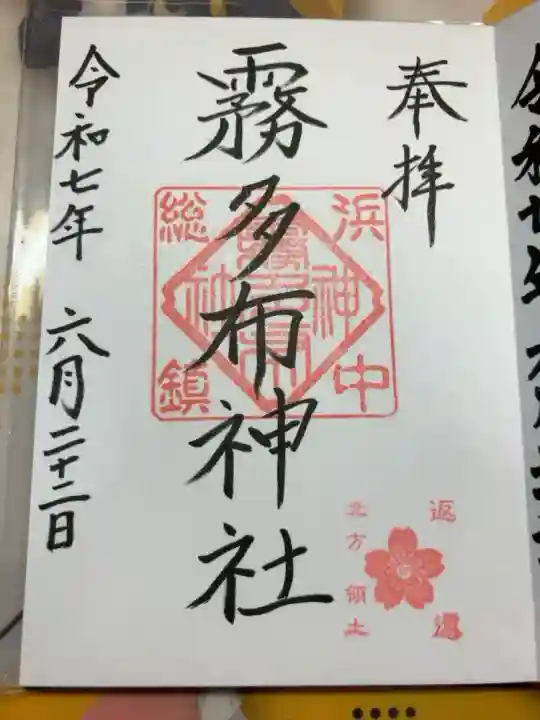 奉拝
霧多布神社
浜中
総鎮
神社
返還
北方領土
令和七年 六月二十二日